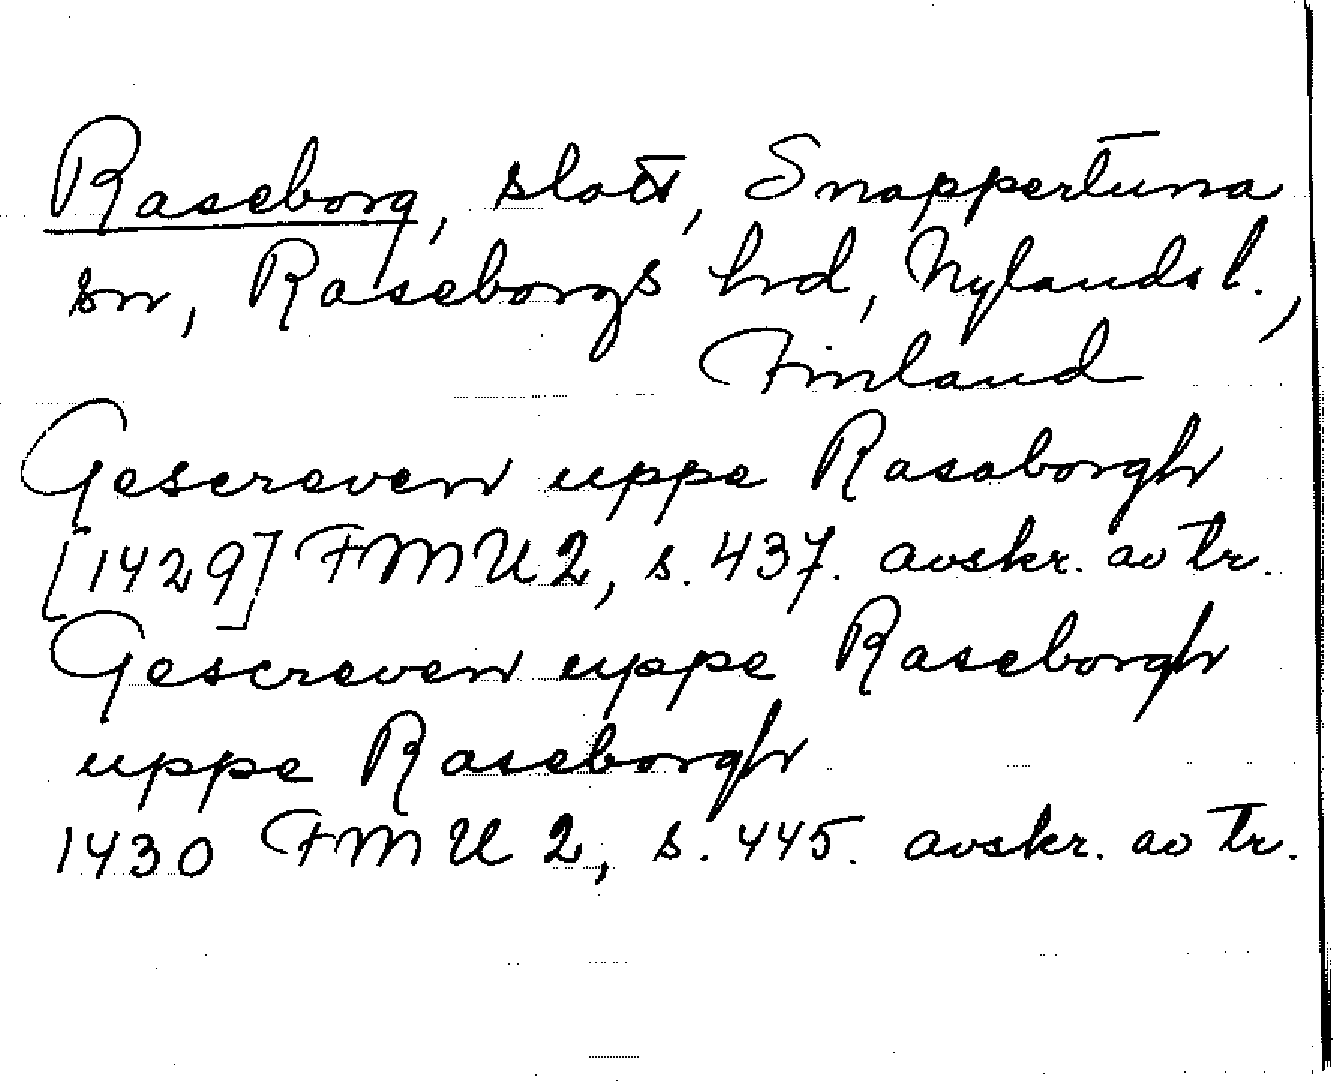 Raseborg, slott, Snappertuna
sn, Raseborgs hrd, Nylands l.,
Finland
Gescreven uppe Rasaborgh
[1429] FMU 2, s. 437. avskr. av tr.
Gescreven uppe Raseborgh
uppe Raseborgh
1430 FMU 2, s. 445. avskr. av tr.